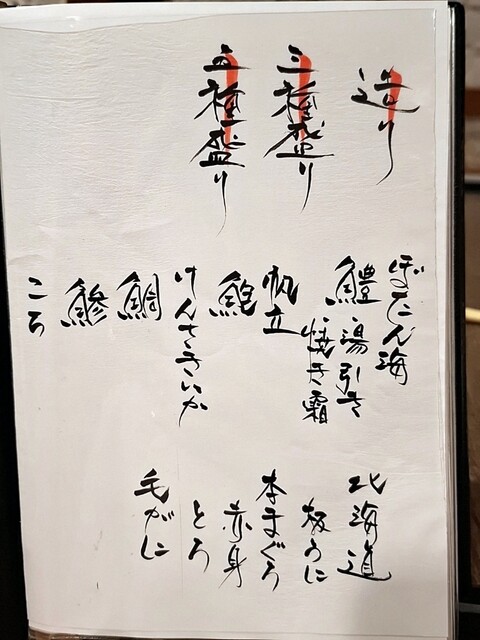 造り
三種盛り
五種盛り
ぼたん海
鱧・湯引き
・焼き霜
帆立
鮑
けんさきいか
鯛
鯵
ころ
北海道
板うに
本まぐろ
赤身
とろ
毛がに